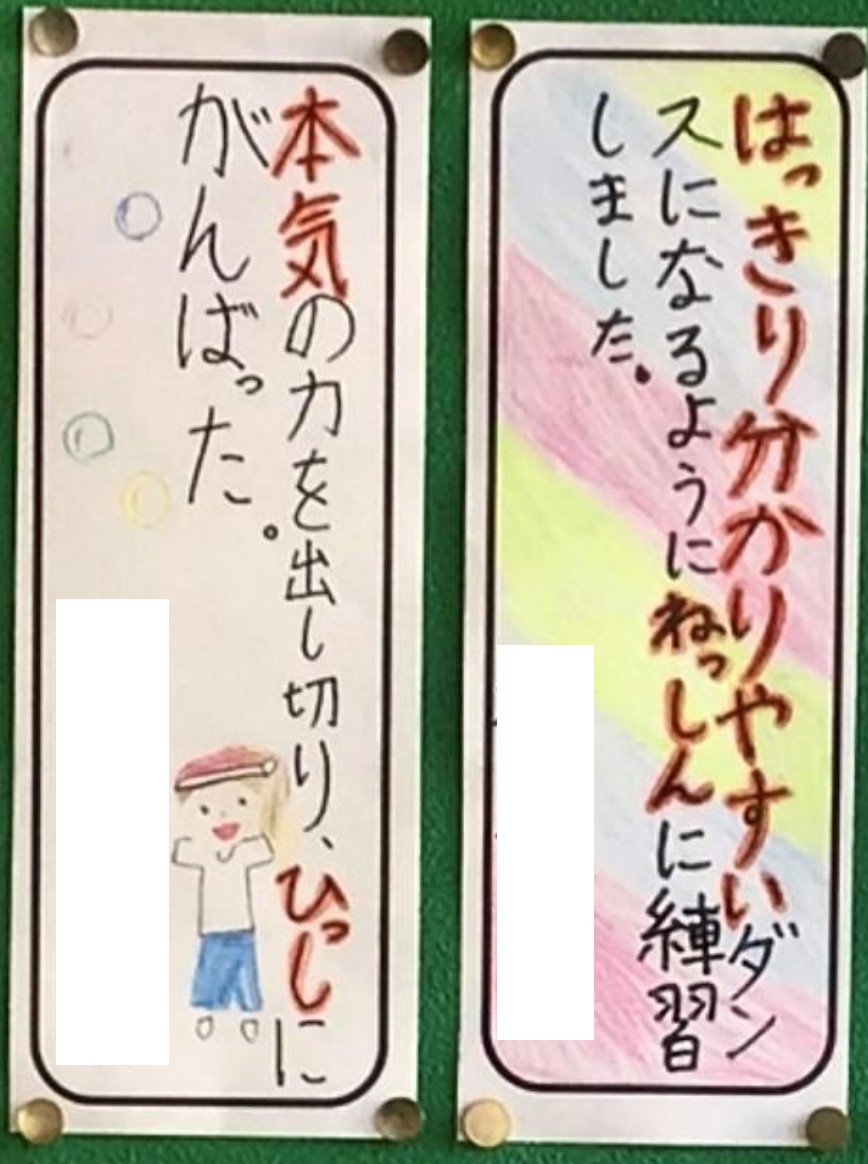 はっきり分かりやすいダン
スになるようにねっしんに練習
しました。
本気の力を出し切り、ひっしに
がんばった。